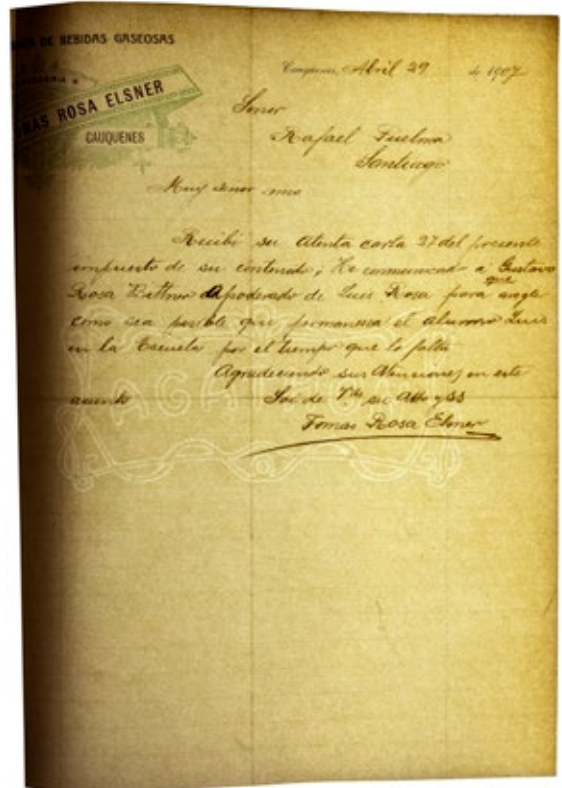 DE BEBIDAS GASEOSAS
MAS ROSA ELSNER
CAUQUENES
Cauquenes, Abril 29 de 1907
Señor
Rafael Guelma
Santiago
Muy señor mio
Recibi su atenta carta 27 del presente
impuesto de su contenido; He comunicado a Gustavo
Rosa Bittner Apoderado de Luis Rosa para que aregle
como sea posible que permanesca el alumno Luis
en la Escuela por el tiempo que le falta
Agradeciendo sus Atenciones en este
asunto Soi de Vd. su Atto y SS
Tomas Rosa Elsner